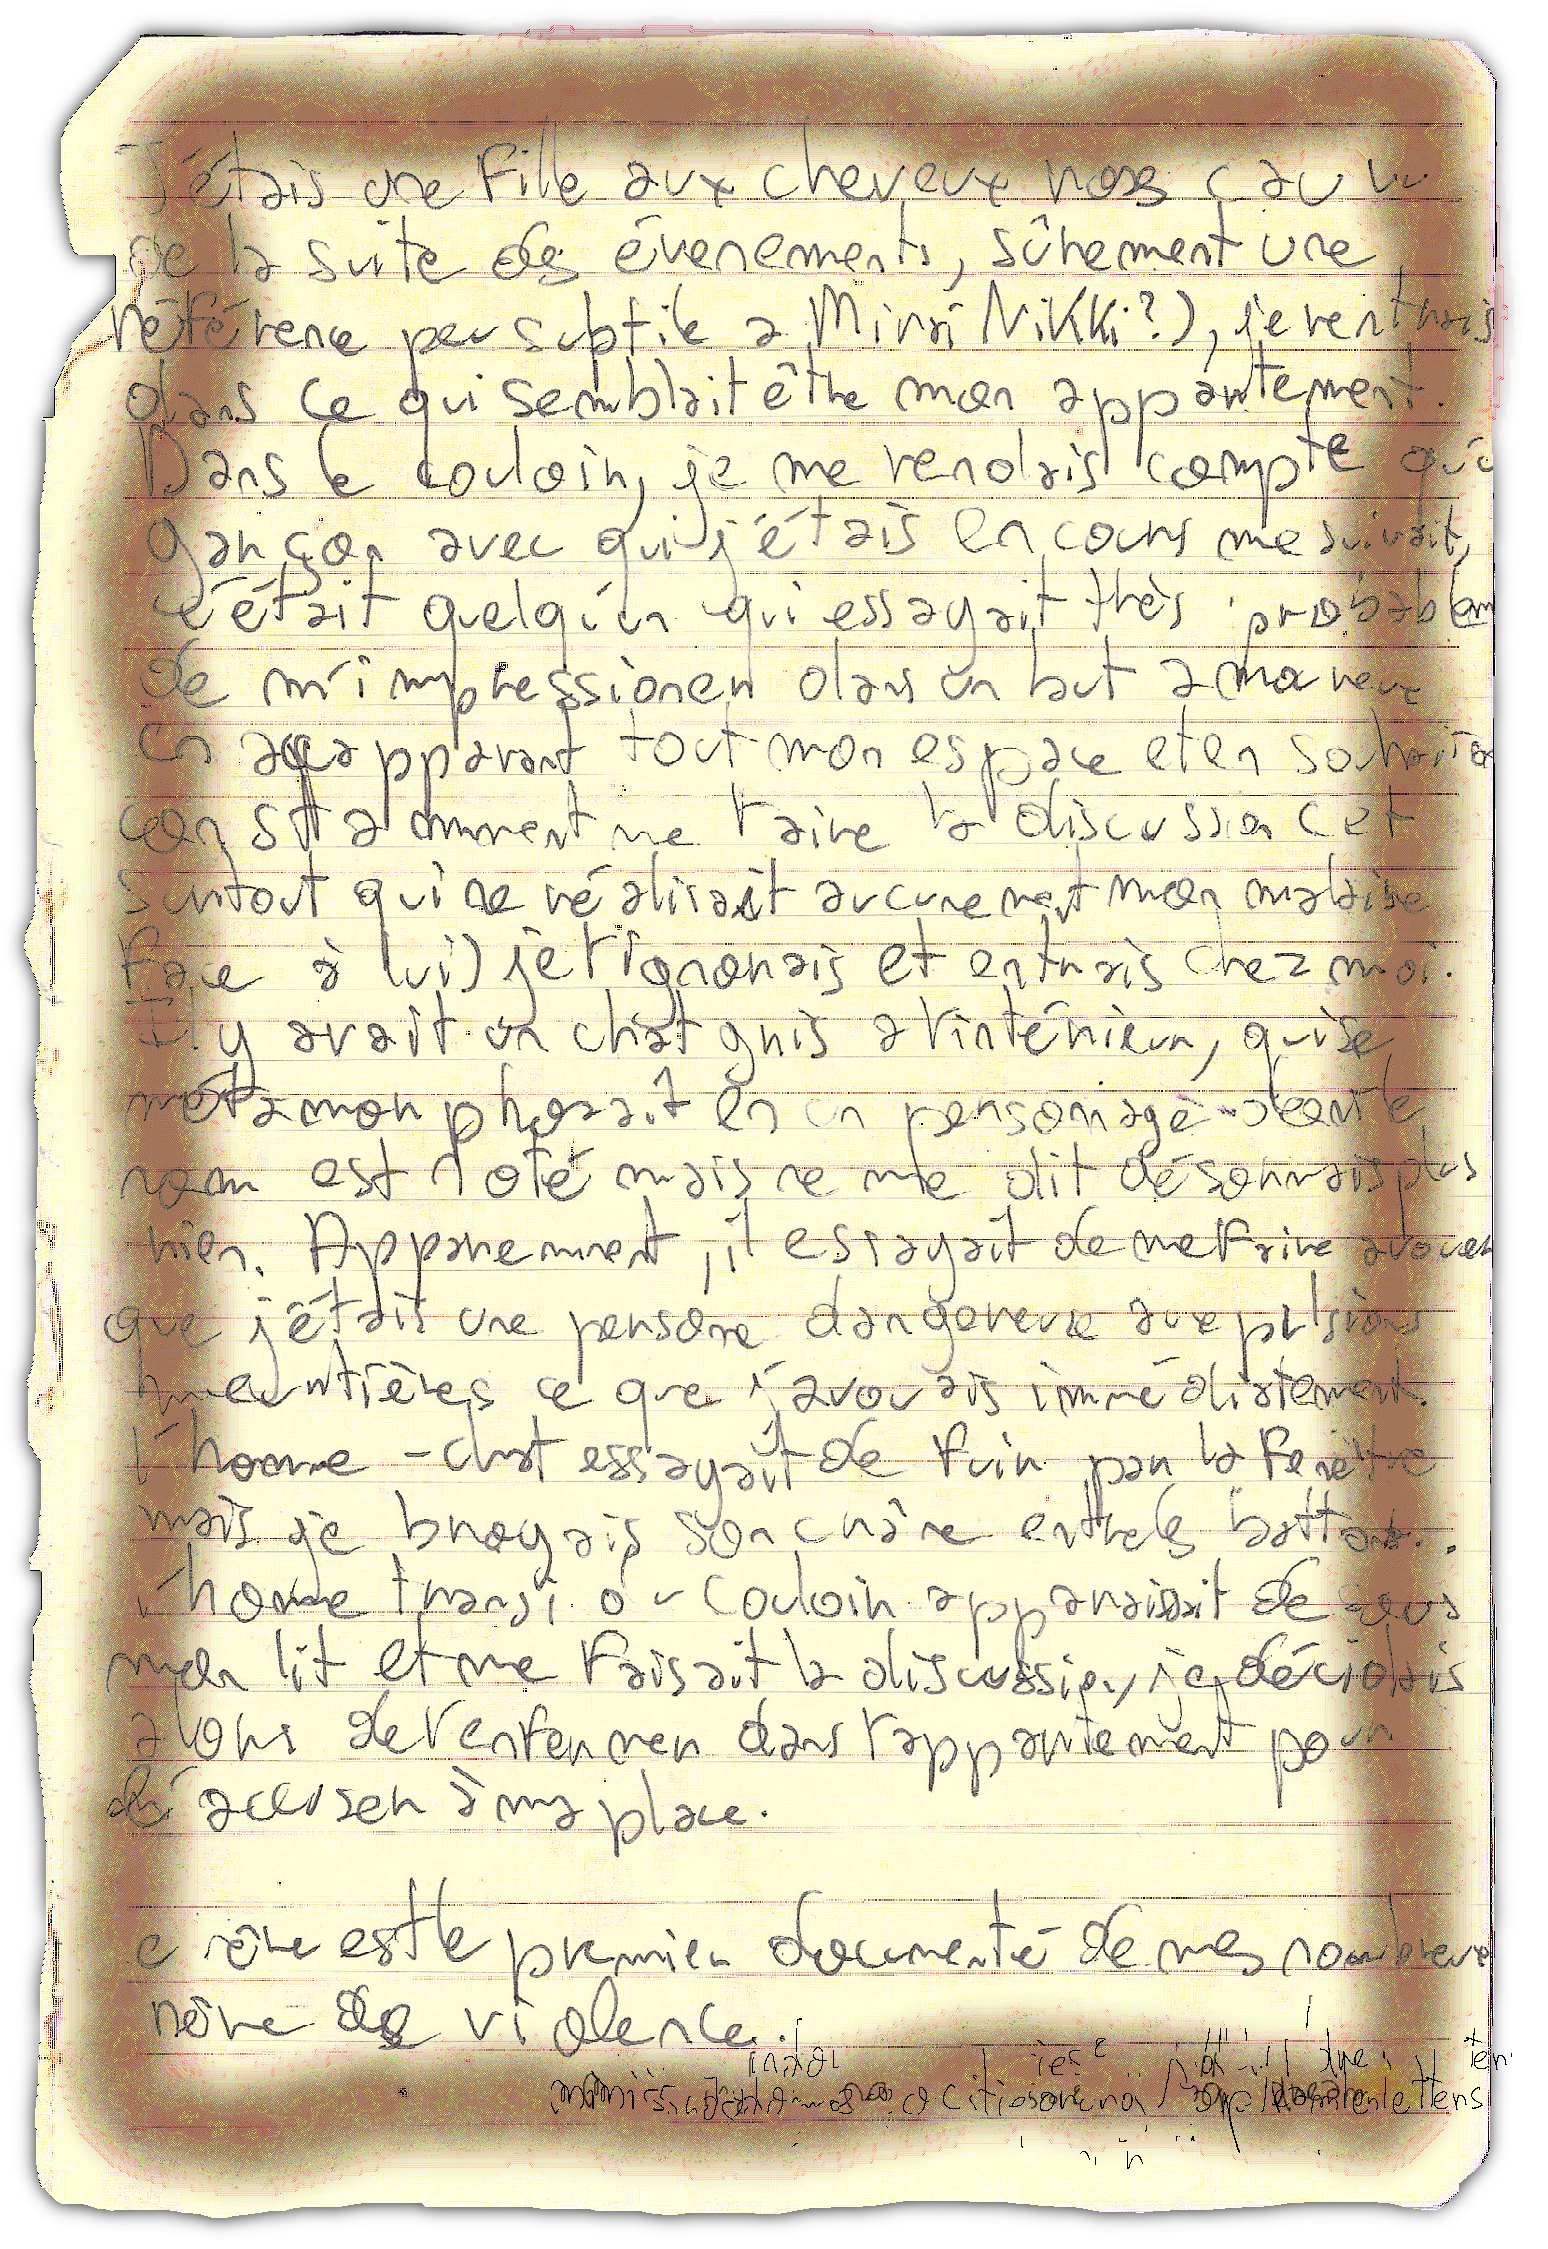 J'étais une fille aux cheveux roses (au vu
de la suite des évenements, sûrement une
référence peu subtile a Mirai Nikki?), je rentrais
dans ce qui semblait être mon appartement.
Dans le couloir, je me rendais compte qu'u
garçon avec qui j'étais en cours me suivait,
c'était quelqu'un qui essayait très probablem
de m'impressioner dans un but amoureux
en accapparant tout mon espace et en souhaita
constamment me faire la discussion (et
surtout qui ne réalisait aucunement mon malaise
face à lui) je l'ignorais et entrais chez moi.
Il y avait un chat gris a l'intérieur, qui se
métamorphosait en un personage dont le
nom est noté mais ne me dit désormais plus
rien. Apparemment, il essayait de me faire avouer
que j'étais une persone dangereuse aux pulsions
meurtières ce que j'avouais immédiatement.
l'homme-chat essayait de fuir par la fenêtre
mais je broyais son crâne entre les battans.
l'homme transi du couloir apparaissait de sous
mon lit et me faisait la discussion, je décidais
alors de l'enfermer dans l'appartement pour
l'accuser à ma place.
ce rêve est le premier documenté de mes nombreux
rêve de violence.